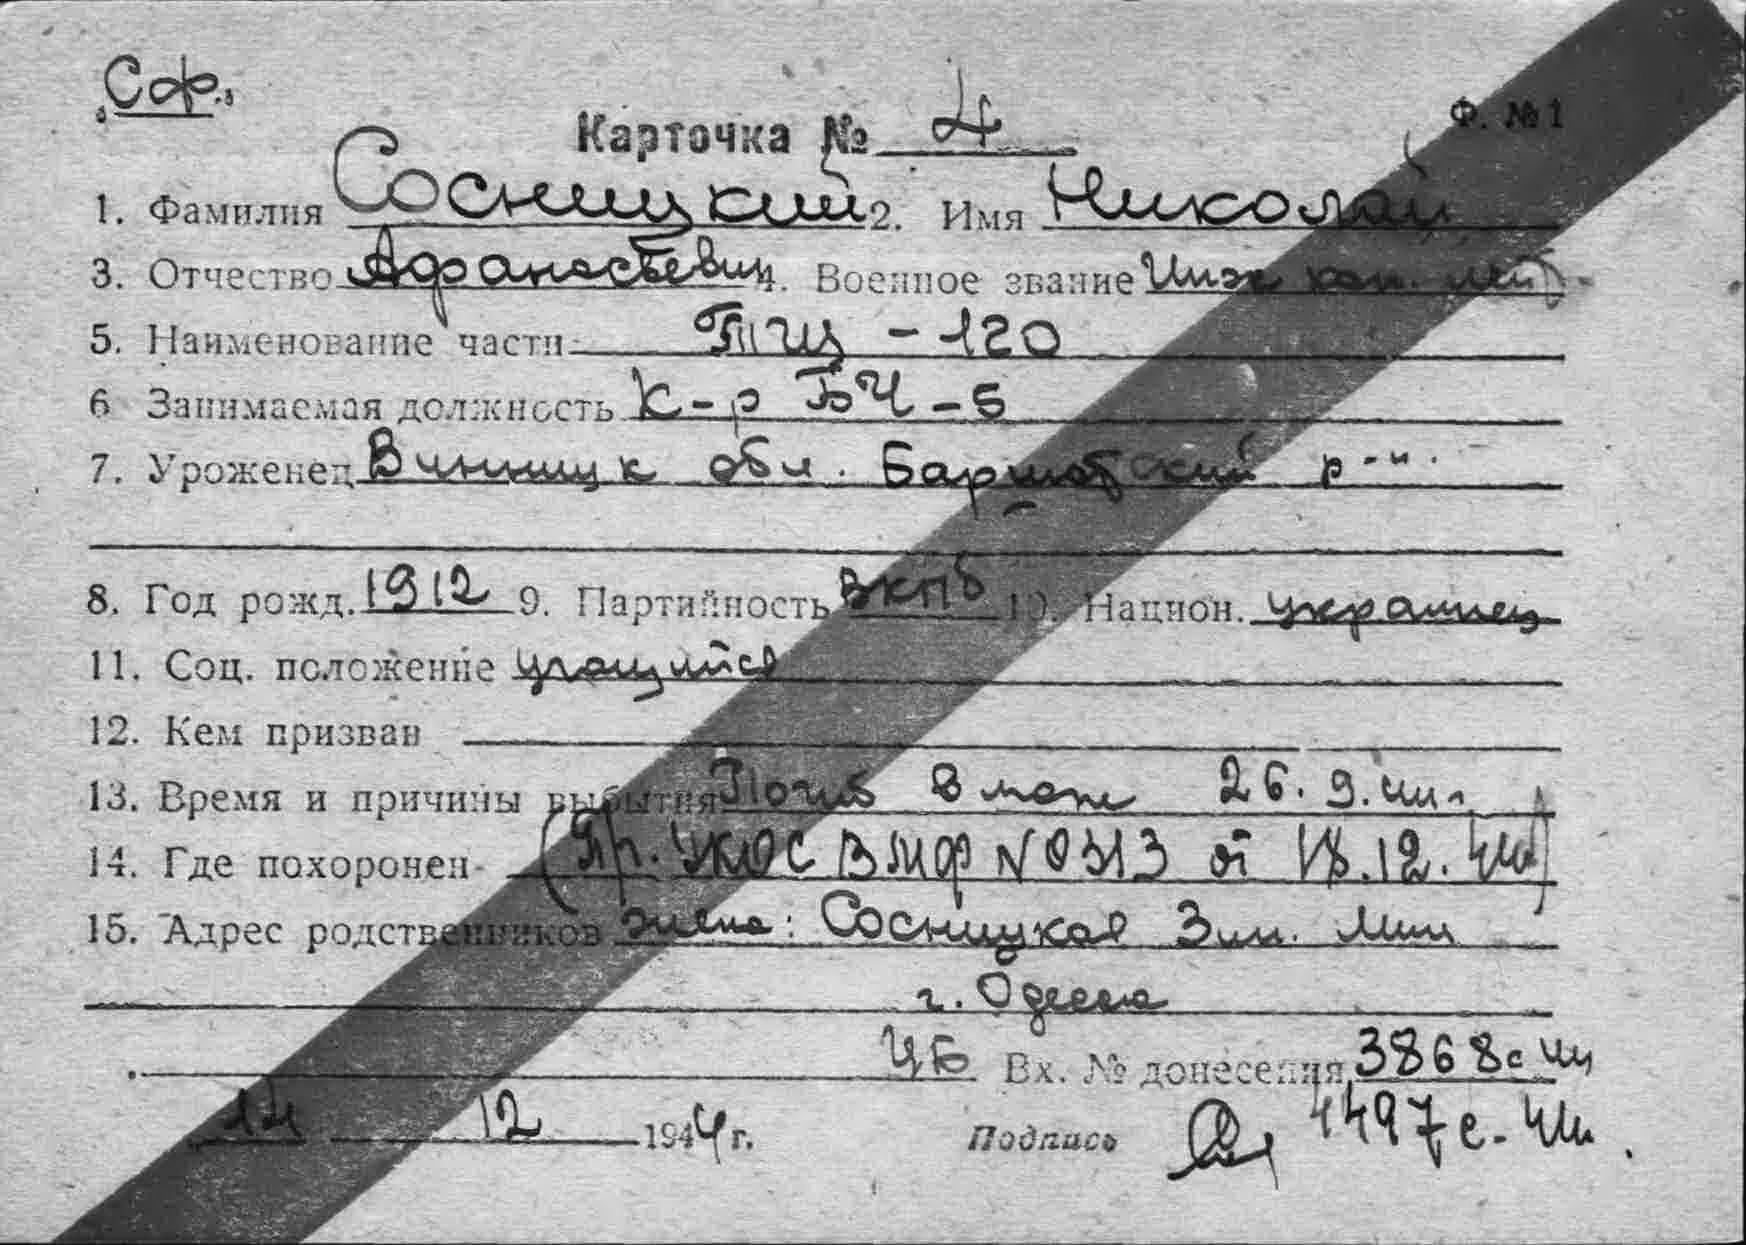 „Сф.“
Ф. №1
Карточка № 4
1. Фамилия Сосницкий 2. Имя Николай
3. Отчество Афанасьевич 4. Военное звание Инж кап. лейт
5. Наименование части ТЩ - 120
6 Занимаемая должность К-р БЧ-5
7. Уроженец Винницк обл. р-н.
8. Год рожд. 1912 9. Партийность ВКПб 10. Национ. украинец
11. Соц. положение учащийся
12. Кем призван
13. Время и причины выбытия Погиб в море 26.9.44г.
14. Где похоронен (Пр. УКОС ВМФ № 0313 от 18.12.44)
15. Адрес родственников жена: Сосницкая Зин.
г. Одесса
ЦБ Вх. № донесения 3868с 44
14 12 1944 г. Подпись 4497с-44.